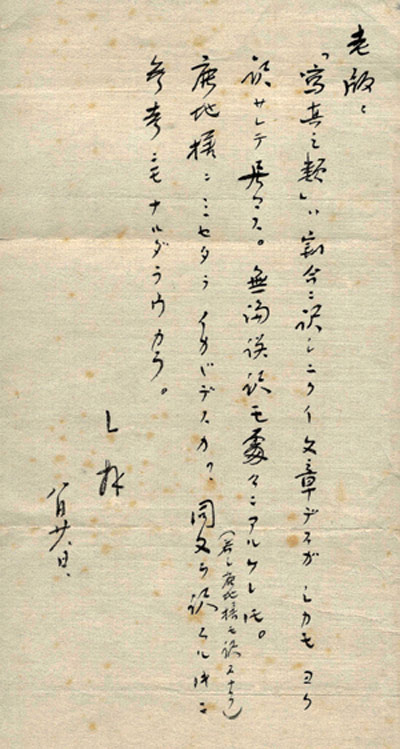 老版、
「寫真之類」ハ割合ニ訳シニクイ文章デスガ シカモヨク
訳サレテ居マス。無論誤訳モ處々ニアルケレドモ。
(若シ鹿地様モ訳スナラ)
鹿地様ニミセタラ イカゞデスカ、同文ヲ訳スル時ニ
参考ニモナルダラウカラ。
L 拜
八月廿八日、